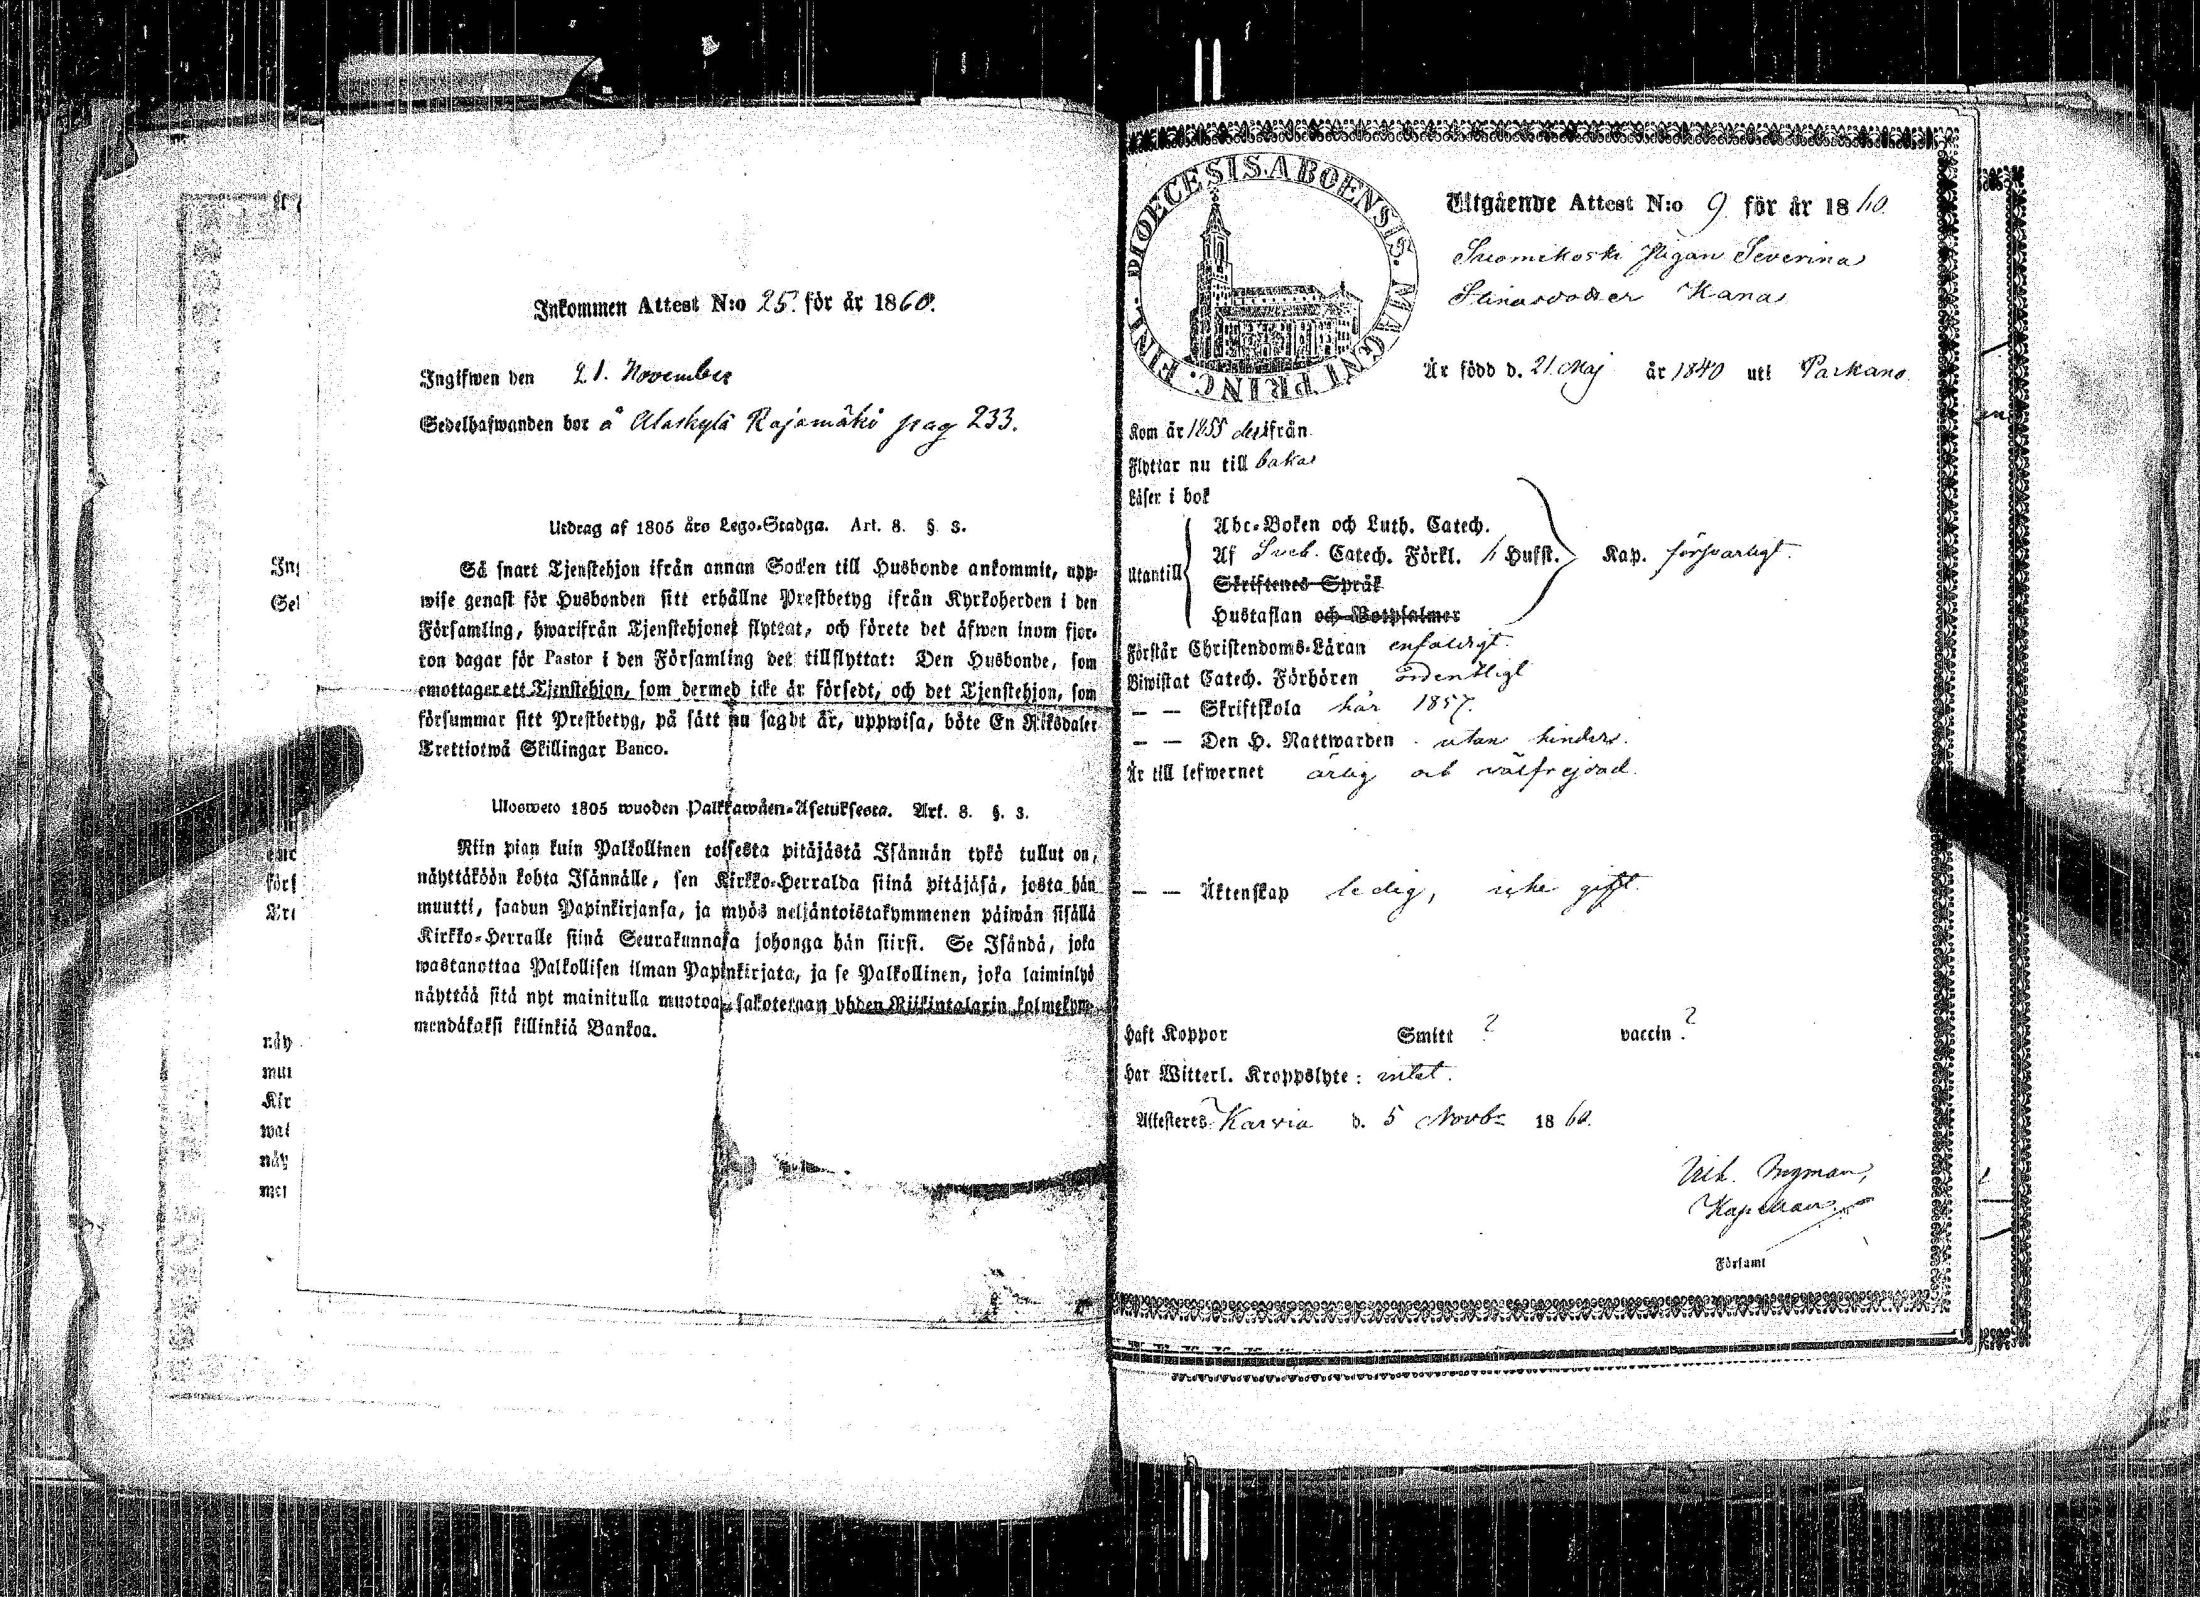 Inkommen Attest N:o 25. för år 1860.
Ingifwen den 21. November
Sedelhafwanden bor å Alaskylä Rajamäki pag 233.
Utdrag af 1805 års Lego-Stadga. Art. 8. §. 3.
Så snart Tjenstehjon ifrån annan Socken till Husbonde ankommit, upp-
wise genast för Husbonden sitt erhållne Prestbetyg ifrån Kyrkoherden i den
Församling, hwarifrån Tjenstehjonet flyttat, och förete det äfwen inom fjor-
ton dagar för Pastor i den Församling det tillflyttat: Den Husbonde, som
emottager ett Tjenstehjon, som dermed icke är försedt, och det Tjenstehjon, som
försummar sitt Prestbetyg, på sätt nu sagdt är, uppwisa, böte En Riksdaler
Trettiotwå Skillingar Banco.
Ulosweto 1805 wuoden Palkkawäen-Asetuksesta. Art. 8. §. 3.
Niin pian kuin Palkollinen toisesta pitäjästä Isännän tykö tullut on,
näyttäköön kohta Isännälle, sen Kirkko-Herralda siinä pitäjäsä, josta hän
muutti, saadun Papinkirjansa, ja myös neljäntoistakymmenen päiwän sisällä
Kirkko-Herralle siinä Seurakunnasa johonga hän siirsi. Se Isändä, joka
wastanottaa Palkollisen ilman Papinkirjata, ja se Palkollinen, joka laiminlyö
näyttää sitä nyt mainitulla muotoa, sakotetaan yhden Riikintalarin kolmekym-
mendäkaksi killinkiä Bankoa.
DIOECESIS. ABOENSIS. MAGNI PRINC. FINL.
Utgående Attest N:o 9. för år 1860.
Suomikoski Pigan Severina
Stinasdotter Kana
Är född d. 21. Maj år 1840 uti Parkano
Kom år 1855 derifrån
Flyttar nu till baka
Läser i bok
Utantill
Abc-Boken och Luth. Catech.
Af Sveb. Catech. Förkl. h Husst. Kap. försvarligt.
Skriftenes Språk
Hustaflan och Botpsalmer
Förstår Christendoms-Läran enfaldigt.
Biwistat Catech. Förhören ordentligt
— — Skriftskola här 1857.
— — Den H. Nattwarden utan hinder.
Är till lefwernet ärlig och välfrejdad.
— — Äktenskap ledig, icke gift.
Haft Koppor Smitt ? vaccin ?
Har Witterl. Kroppslyte: intet.
Attesteres Karvia d. 5 Novbr 1860.
Ingman,
Kapellan
Församl